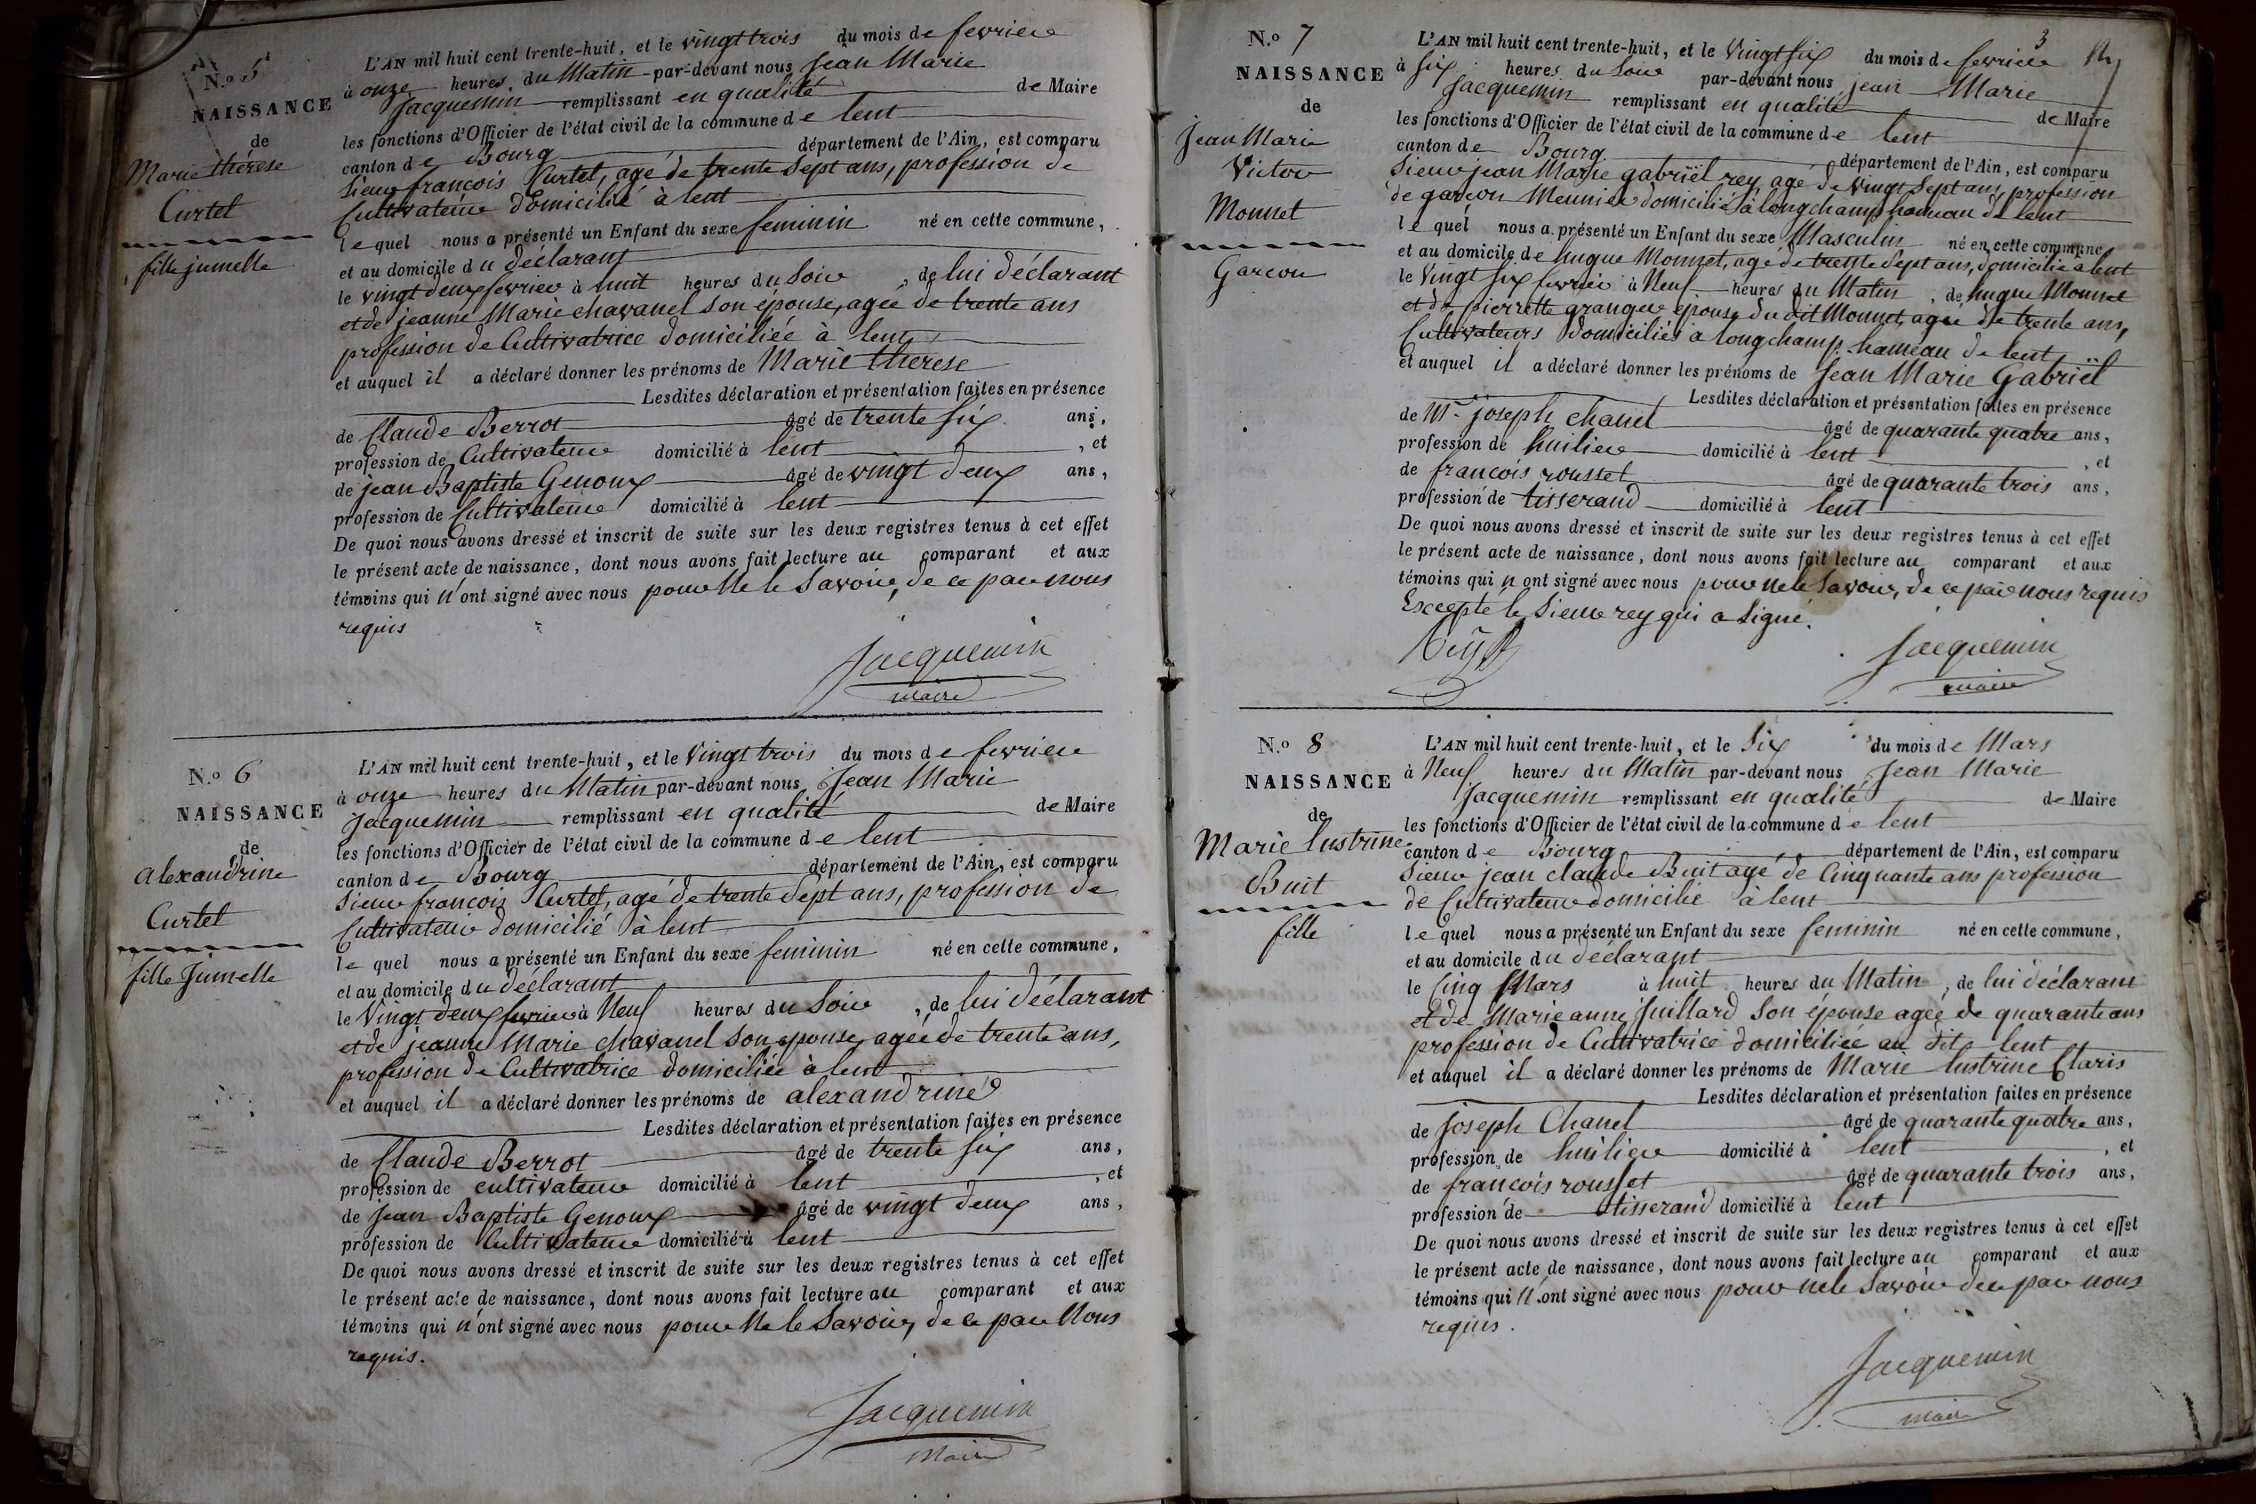 N.º 5
NAISSANCE
de
Marie thérèse
Curtet
fille jumelle
L'AN mil huit cent trente-huit, et le vingt trois du mois de fevrier
à onze heures du Matin par-devant nous Jean Marie
Jacquemin remplissant en qualité de Maire
les fonctions d'Officier de l'état civil de la commune de lent
canton de Bourg département de l'Ain, est comparu
Sieur françois Curtet, agé de trente Sept ans, profession de
Cultivateur domicilié à lent
lequel nous a présenté un Enfant du sexe feminin né en cette commune,
et au domicile du déclarant
le vingt deux fevrier à huit heures du Soir, de lui déclarant
et de jeanne Marie chavanel son épouse, agée de trente ans
profession de Cultivatrice domiciliée à lent
et auquel il a déclaré donner les prénoms de Marie thérèse
Lesdites déclaration et présentation faites en présence
de Claude Berrot âgé de trente six ans,
profession de Cultivateur domicilié à lent, et
de jean Baptiste Genoux âgé de vingt deux ans,
profession de Cultivateur domicilié à lent
De quoi nous avons dressé et inscrit de suite sur les deux registres tenus à cet effet
le présent acte de naissance, dont nous avons fait lecture au comparant et aux
témoins qui n'ont signé avec nous pour ne le Savoir, de ce par nous
requis
Jacquemin
maire
N.º 6
NAISSANCE
de
alexandrine
Curtet
fille Jumelle
L'AN mil huit cent trente-huit, et le Vingt trois du mois de fevrier
à onze heures du Matin par-devant nous Jean Marie
Jacquemin remplissant en qualité de Maire
les fonctions d'Officier de l'état civil de la commune de lent
canton de Bourg département de l'Ain, est comparu
Sieur françois Curtet, agé de trente Sept ans, profession de
Cultivateur domicilié à lent
lequel nous a présenté un Enfant du sexe feminin né en cette commune,
et au domicile du déclarant
le Vingt deux fevrier à Neuf heures du Soir, de lui déclarant
et de jeanne Marie chavanel son épouse, agée de trente ans,
profession de Cultivatrice domiciliée à lent
et auquel il a déclaré donner les prénoms de alexandrine
Lesdites déclaration et présentation faites en présence
de Claude Berrot âgé de trente six ans,
profession de cultivateur domicilié à lent, et
de Jean Baptiste Genoux âgé de vingt deux ans,
profession de Cultivateur domicilié à lent
De quoi nous avons dressé et inscrit de suite sur les deux registres tenus à cet effet
le présent acte de naissance, dont nous avons fait lecture au comparant et aux
témoins qui n'ont signé avec nous pour ne le Savoir, de ce par Nous
requis.
Jacquemin
Maire
3
N.º 7
NAISSANCE
de
Jean Marie
Victor
Monnet
Garcon
L'AN mil huit cent trente-huit, et le Vingt six du mois de fevrier
à six heures du Soir par-devant nous jean Marie
Jacquemin remplissant en qualité de Maire
les fonctions d'Officier de l'état civil de la commune de lent
canton de Bourg département de l'Ain, est comparu
Sieur jean Marie gabriël rey, agé de Vingt Sept ans, profession
de garçon Meunier domicilié à longchamp hameau de lent
lequel nous a présenté un Enfant du sexe Masculin né en cette commune,
et au domicile de hugue Monnet, agé de trente Sept ans, domicilié à lent
le Vingt six fevrier à Neuf heures du Matin, de hugue Monnet
et de pierrette granger épouse du dit Monnet, agée de trente ans,
Cultivateurs domiciliés à longchamp hameau de lent
et auquel il a déclaré donner les prénoms de Jean Marie Gabriël
Lesdites déclaration et présentation faites en présence
de Mr. joseph chanel âgé de quarante quatre ans,
profession de huilier domicilié à lent, et
de françois rousset âgé de quarante trois ans,
profession de tisserand domicilié à lent
De quoi nous avons dressé et inscrit de suite sur les deux registres tenus à cet effet
le présent acte de naissance, dont nous avons fait lecture au comparant et aux
témoins qui n'ont signé avec nous pour ne le Savoir, de ce par nous requis
Excepté le Sieur rey qui a Signé.
Rey
Jacquemin
maire
N.º 8
NAISSANCE
de
Marie lustrine
Buit
fille
L'AN mil huit cent trente-huit, et le Six du mois de Mars
à Neuf heures du Matin par-devant nous Jean Marie
Jacquemin remplissant en qualité de Maire
les fonctions d'Officier de l'état civil de la commune de lent
canton de Bourg département de l'Ain, est comparu
Sieur jean claude Buit agé de Cinquante ans profession
de Cultivateur domicilié à lent
lequel nous a présenté un Enfant du sexe feminin né en cette commune,
et au domicile du déclarant
le Cinq Mars à huit heures du Matin, de lui déclarant
et de Marie anne Juillard Son épouse agée de quarante ans
profession de Cultivatrice domiciliée au dit lent
et auquel il a déclaré donner les prénoms de Marie lustrine Claris
Lesdites déclaration et présentation faites en présence
de joseph Chanel âgé de quarante quatre ans,
profession de huilier domicilié à lent, et
de françois rousset âgé de quarante trois ans,
profession de tisserand domicilié à lent
De quoi nous avons dressé et inscrit de suite sur les deux registres tenus à cet effet
le présent acte de naissance, dont nous avons fait lecture au comparant et aux
témoins qui n'ont signé avec nous pour ne le Savoir de ce par nous
requis.
Jacquemin
maire